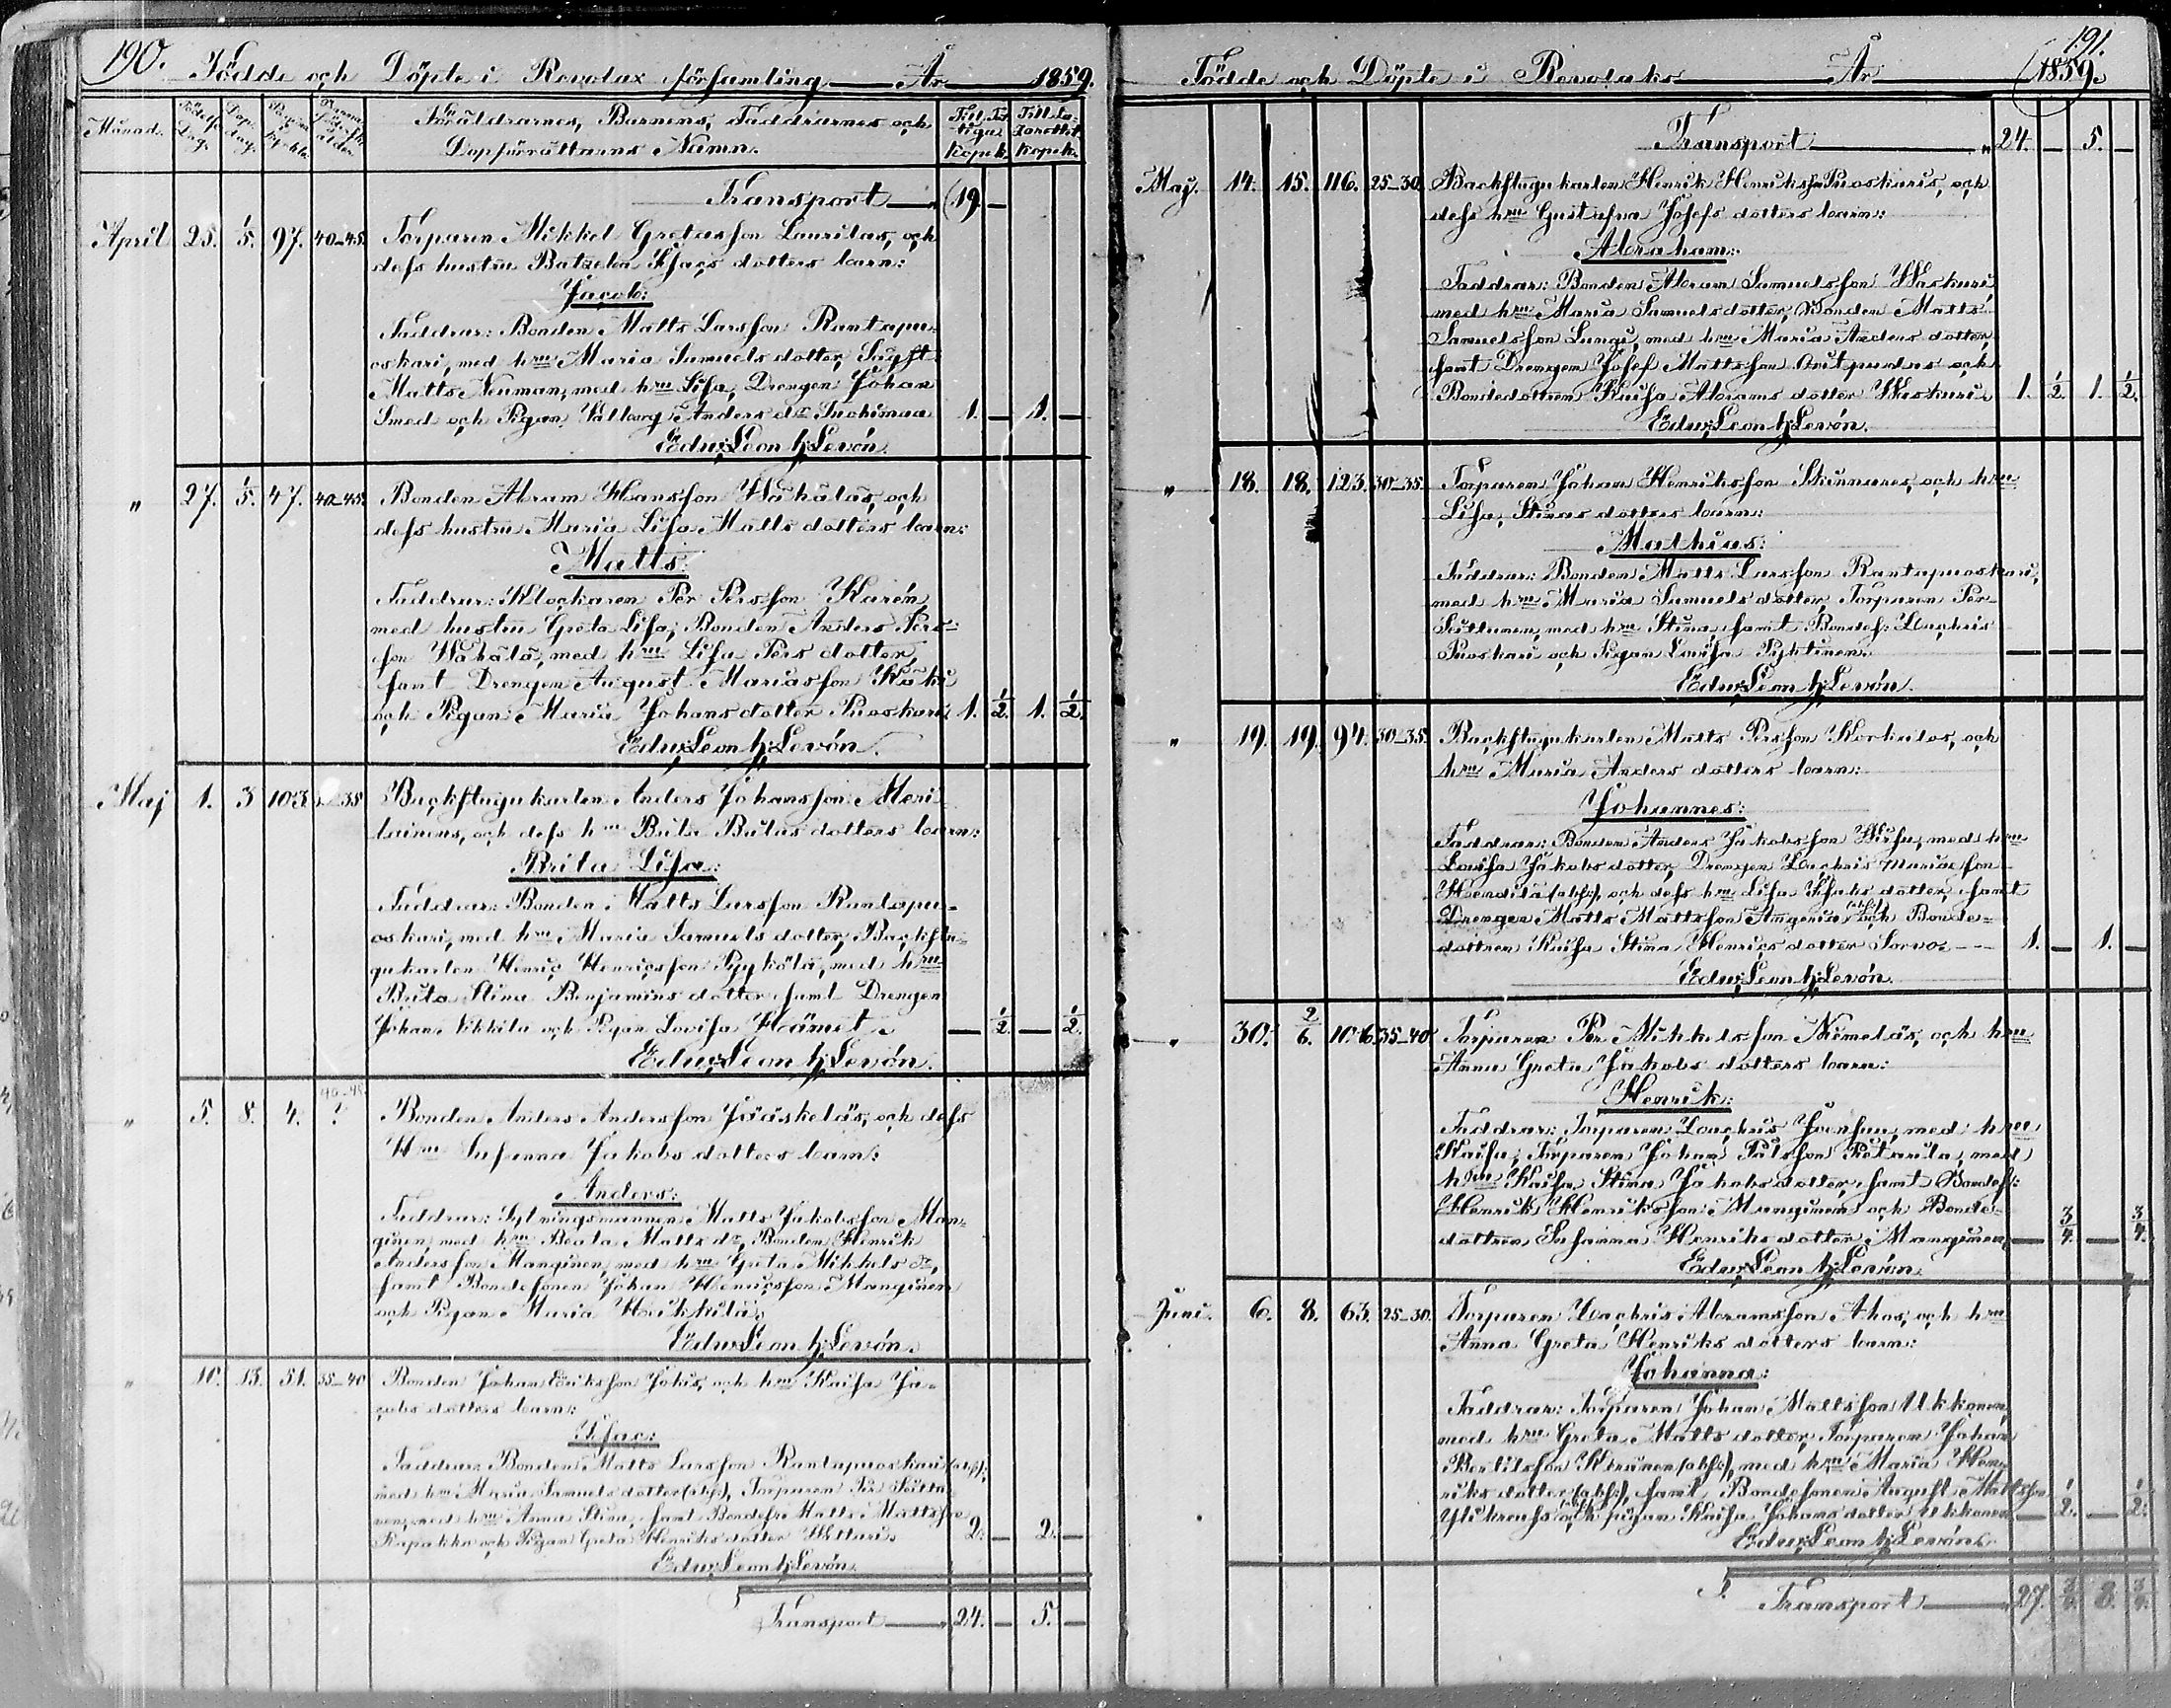 190.
Födde och Döpte i Revolax församling År 1859.
Månad.
Födelse Dag.
Dop. dag.
Pagina i Kyrkb.
Föräldrarnes, Barnens, Faddrarnes och
Dopförrättarns Namn.
Till Fattiga Kopek.
Till Lazarettet Kopek.
Transport 19. —
April 25. 1/5. 97. 40–45. Torparen Mikkel Gretasson Laurilas, och
dess hustru Isacs dotters barn:
Jacob:
Faddrar: Bonden Matts Larsson Rantapu-
oskari, med hru Maria Samuels dotter,
Matts Neuman, med hru Lisa, Drengen Johan
Smed och Pigan Valborg Anders dr 1. — 1. —
Edv: Leon h: Levón.
" 27. 1/5. 47. 40–45. Bonden Abram Hansson Wähäläs, och
dess hustru Maria Lisa Matts dotters barn:
Matts:
Faddrar: Klockaren Per Persson Karén,
med hustru Greta Lisa; Bonden Anders Pers-
son Wähälä, med hru Lisa Pers dotter,
samt Drengen August Mariasson
och Pigan Maria Johans dotter Puoskari 1. 1/2. 1. 1/2.
Edv: Leon h: Levón.
Maj 1. 3 103. –35 Backstugukarlen Anders Johansson Meri-
lainens, och dess hru Brita Britas dotters barn:
Brita Lisa:
Faddrar: Bonden Matts Larsson Rantapu-
oskari, med hru Maria Samuels dotter, Backstu-
gukarlen Henric Henricsson Pyykölä, med hru
Brita Stina Benjamins dotter samt Drengen
Johan Nikkila och Pigan Lovisa Hämet. — 1/2. — 1/2.
Edv: Leon h: Levón.
" 5. 8. 4. 40–45 ? Bonden Anders Andersson Jääskeläs, och dess
Hru Susanna Jakobs dotters barn:
Anders:
Faddrar: Matts Jakobsson Man-
ginen, med hru Beata Matts dr, Bonden Henrik
Andersson Manginen, med hru Greta Mikkels dr,
samt Bondesonen Johan Henricsson Manginen
och Pigan Maria Heikkilä.
Edv: Leon h: Levón.
" 10. 13. 51. 35–40 Bonden Johan Eriksson Jokis, och hru Kaisa Ja-
cobs dotters barn:
Isac:
Faddrar: Bonden Matts Larsson Rantapuoskari (abs:),
med hru Maria Samuels dotter (abs:), Torparen Per
nen, med hru Anna Stina, samt Bondess: Matts Mattsson
och Pigan Greta Henriks dotter 2. — 2. —
Edv: Leon h: Levón.
Transport 24. — 5. —
191.
Födde och Döpte i Revolaks År 1859.
Transport " 24. — 5. —
Maj. 14. 15. 116. 25–30. Backstugukarlen Henrik Henriksson Puoskaris, och
dess hru Gustafva Josefs dotters barn:
Abraham:
Faddrar: Bonden Abram Samuelsson Waskuri
med hru Maria Samuelsdotter, Bonden Matts
Samuelsson Lungi, med hru Maria Anders dotter,
samt Drengen Josef Mattsson och
Bondedottren Kaisa Abrams dotter Waskuri. 1. 1/2. 1. 1/2.
Edv: Leon h: Levón.
" 18. 18. 123. 30–35. Torparen Johan Henriksson och hru
Lisa, Stinas dotters barn:
Mathias:
Faddrar: Bonden Matts Larsson Rantapuoskari,
med hru Maria Samuels dotter, Torparen Per
med hru Stina, samt Bondes: Zachris
Puoskari och Pigan Lovisa — — — —
Edv: Leon h: Levón.
" 19. 19. 94. 30–35. Backstugukarlen Matts Persson Korkalos, och
hru Maria Anders dotters barn:
Johannes:
Faddrar: Bonden Anders Jakobsson med hru
Lovisa Jakobs dotter, Drengen Zachris Mariæson
(abs:), och dess hru Lisa Isaks dotter, samt
Drengen Matts Mattsson (abs:) och Bonde-
dottren Kaisa Stina Henrics dotter Sorvo. 1. — 1. —
Edv: Leon h: Levón.
" 30. 2/6. 106. 35–40 Torparen Per Mikkelsson Niemeläs, och hru
Anna Greta Jakobs dotters barn:
Henrik:
Faddrar: Torparen Zachris Joensuu, med hru
Kaisa, Torparen Johan Pålsson Pietarila, med
hru Kaisa Stina Jakobs dotter, samt Bondes:
Henrik Henriksson Manginen och Bonde-
dottren Susanna Henriks dotter Manginen, — 3/4. — 3/4.
Edv: Leon h: Levón.
Juni. 6. 8. 63. 25–30. Torparen Zachris Abramsson Ahos, och hru
Anna Greta Henriks dotters barn:
Johanna:
Faddrar: Torparen Johan Mattsson Ukkonen,
med hru Greta Matts dotter, Torparen Johan
Bertilsson (abs:), med hru Maria Hen-
riks dotter (abs:), samt Bondesonen August Mattsson
(abs:) och pigan Kaisa Johans dotter Ukkonen — 1/2. — 1/2.
Edv: Leon h: Levón.
Transport 27. 3/4. 8. 3/4.